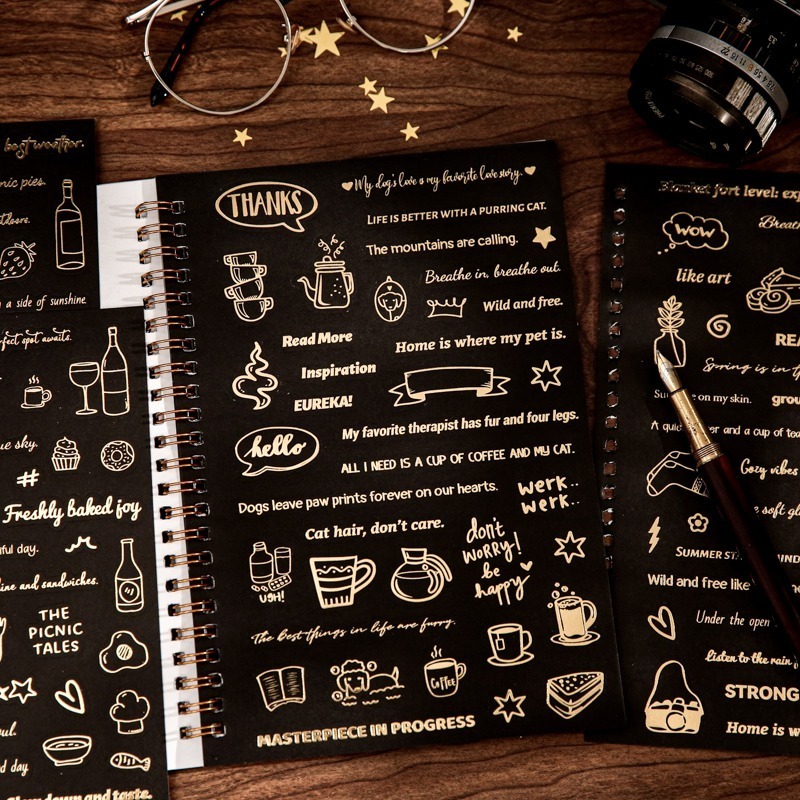 best weather.
nic pies.
a side of sunshine
perfect spot awaits.
ue sky.
#
Freshly baked joy
iful day.
ine and sandwiches.
THE
PICNIC
TALES
oul.
d day.
down and taste.
THANKS
My dog's love is my favorite love story.
LIFE IS BETTER WITH A PURRING CAT.
The mountains are calling.
Breathe in, breathe out.
Wild and free.
Read More
Home is where my pet is.
Inspiration
EUREKA!
My favorite therapist has fur and four legs.
hello
ALL I NEED IS A CUP OF COFFEE AND MY CAT.
Dogs leave paw prints forever on our hearts.
werk..
werk..
Cat hair, don't care.
don't
worry!
be
happy
UGH!
The best things in life are furry.
COFFEE
MASTERPIECE IN PROGRESS
Blanket fort level: exp
WOW
Breath
like art
REA
Spring is in t
on my skin.
grou
A quie er and a cup of tea
Cozy vibes
e soft glo
SUMMER ST
IND
Wild and free like
Under the open
Listen to the rain
STRONG
Home is w